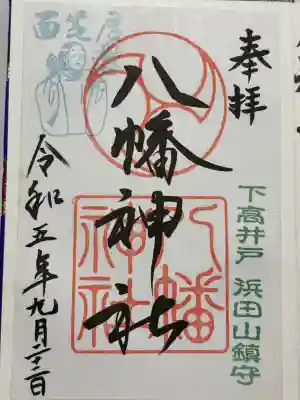 奉拝
下高井戸 浜田山鎮守
八幡神社
八幡神社
令和五年九月二十三日